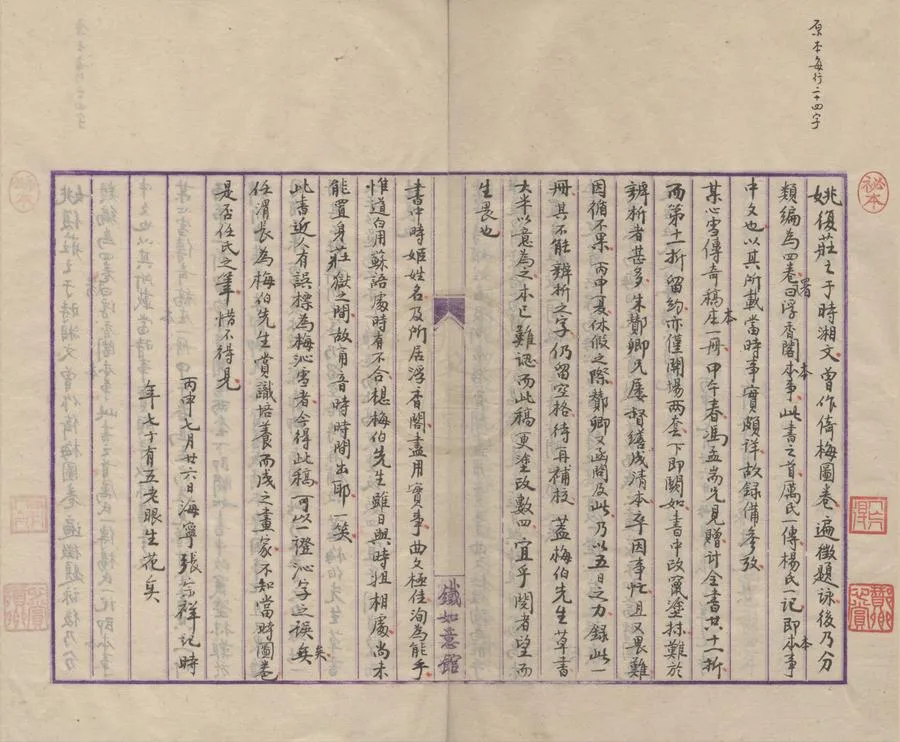 原本每行二十四字
姚復莊之于時湘文曾作倚梅圖卷遍徵題詠後乃分
類編為四卷署曰浮香閣本事此書之首厲氏一傳楊氏一記即本事
中文也以其所載當時事實頗詳故録備參攷
某心雪傳奇稿本一冊甲午春馮孟耑先見贈計全書廿二折
而第十一折留約亦僅開場兩套下即闕如書中改竄塗抹難於
辨析者甚多朱贊卿兄屡督繕成清本卒因事忙且又畏難
因循不果丙申夏休假之際贊卿又函問及此乃以五日之力録此一
冊其不能辨析之字仍留空格待再補校蓋梅伯先生草書
大半以意為之本已難認而此稿更塗改數四宜乎閱者望而
生畏也
書中時姬姓名及所居浮香閣盡用實事曲文極佳洵為能手
惟道白用蘇語處時有不合想梅伯先生雖日與時姬相處尚未
能置身莊嶽之間故甬音時時間出耶一笑
此書近人有誤標為梅沁雪者今得此稿可以一證沁字之誤矣
任渭長為梅伯先生賞識培養而成之畫家不知當時圖卷
是否任氏之筆惜不得見
丙申七月廿六日海寧張宗祥記時
年七十有五老眼生花矣
鐵如意館
秘本